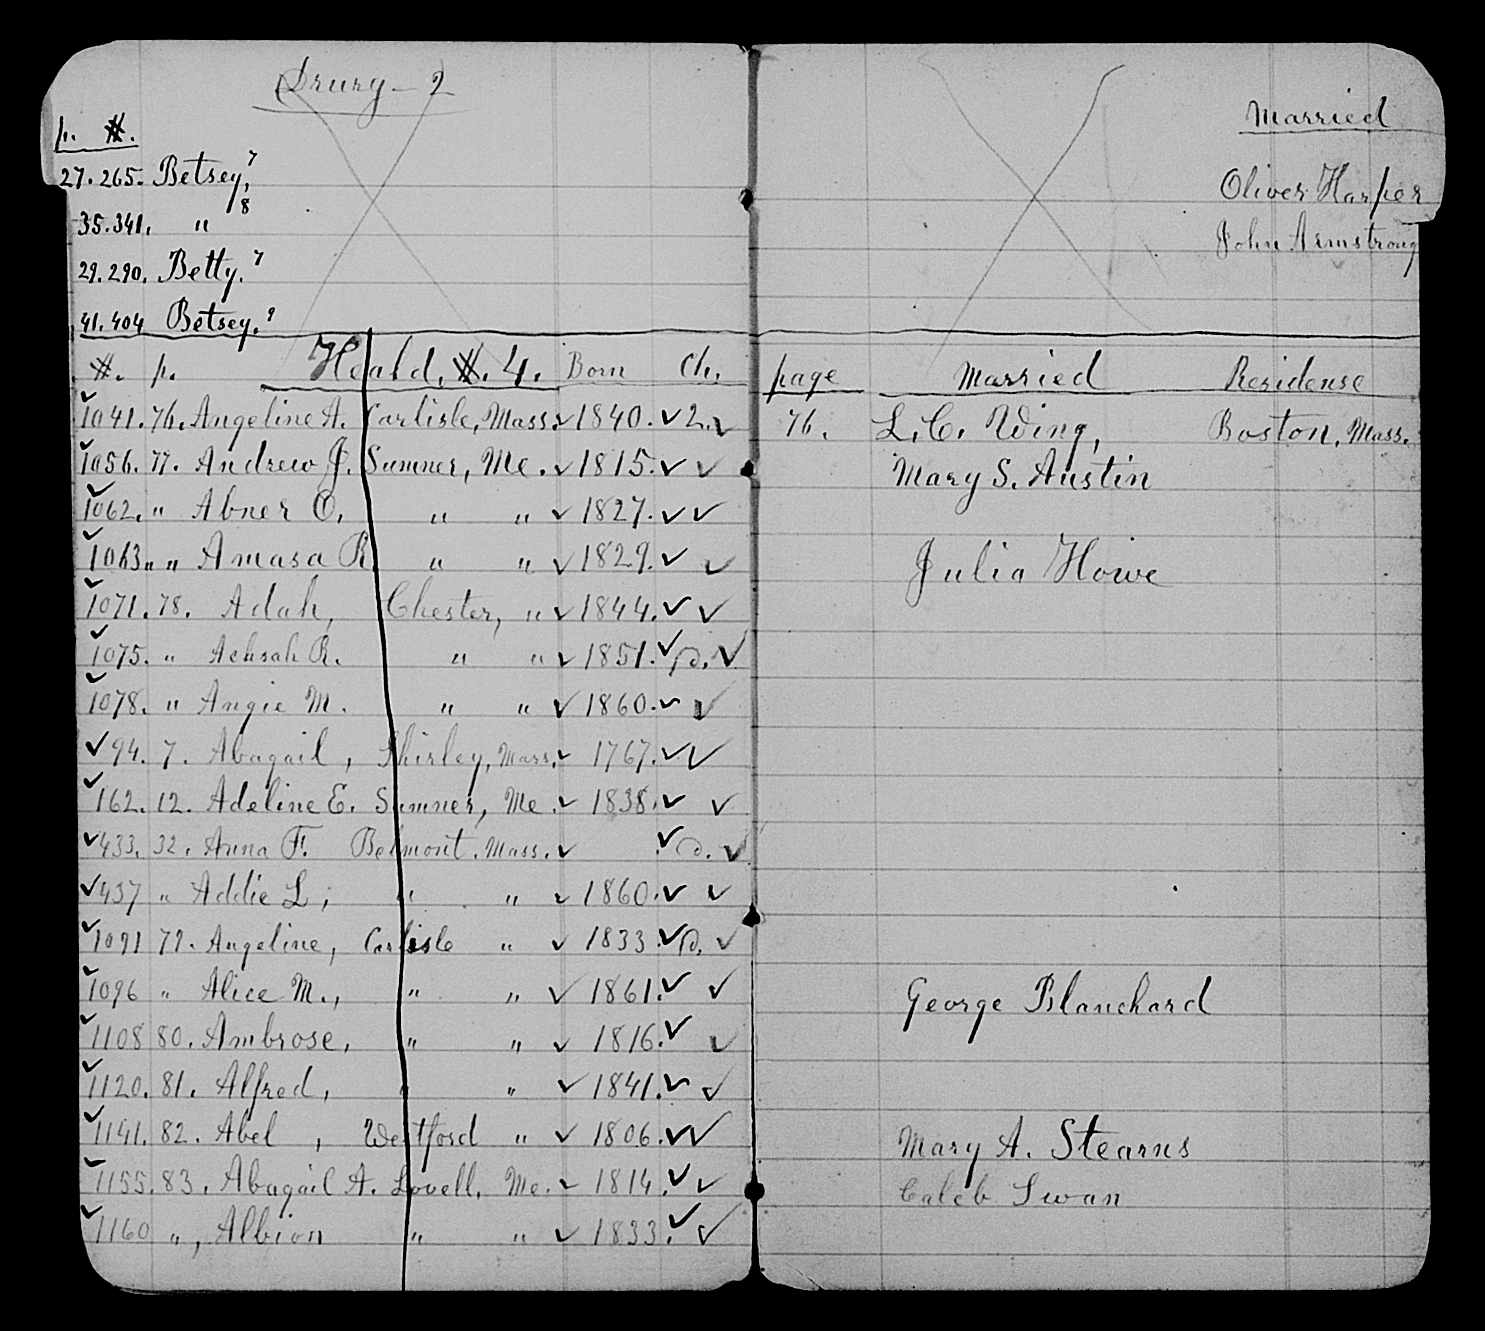 Drury - 2
p. #. Married
27. 265. Betsey,7 Oliver Harper
35. 341. " 8 John Armstrong
29. 290. Betty.7
41. 404 Betsey.9
#. p. Heald. #. 4. Born Ch. page Married Residense
1041. 76. Angeline A. Carlisle, Mass. ✓ 1840. ✓ 2. ✓ 76. L. C. Wing, Boston, Mass.
1056. 77. Andrew J. Sumner, Me. ✓ 1815. ✓ ✓ Mary S. Austin
1062. " Abner O. " " ✓ 1827. ✓ ✓
1063 " " Amasa R " " ✓ 1829. ✓ ✓ Julia Howe
1071. 78. Adah, Chester, " ✓ 1844. ✓ ✓
1075. " Achsah R. " " ✓ 1851. ✓ d. ✓
1078. " Angie M. " " ✓ 1860. ✓ ✓
✓ 94. 7. Abagail, Shirley, Mass. ✓ 1767. ✓ ✓
✓ 162. 12. Adeline E. Sumner, Me. ✓ 1838. ✓ ✓
✓ 433. 32. Anna F. Belmont. Mass. ✓ ✓ d. ✓
✓ 437 " Addie L; " " ✓ 1860. ✓ ✓
✓ 1091 79. Angeline, Carlisle " ✓ 1833 ✓ d. ✓
✓ 1096 " Alice M., " " ✓ 1861. ✓ ✓ George Blanchard
✓ 1108 80. Ambrose, " " ✓ 1816. ✓ ✓
✓ 1120. 81. Alfred, " " ✓ 1841. ✓ ✓
✓ 1141. 82. Abel, Westford " ✓ 1806. ✓ ✓ Mary A. Stearns
✓ 1155. 83. Abagail A. Lovell, Me. ✓ 1814. ✓ ✓ Caleb Swan
✓ 1160 ", Albion " " ✓ 1833. ✓ ✓